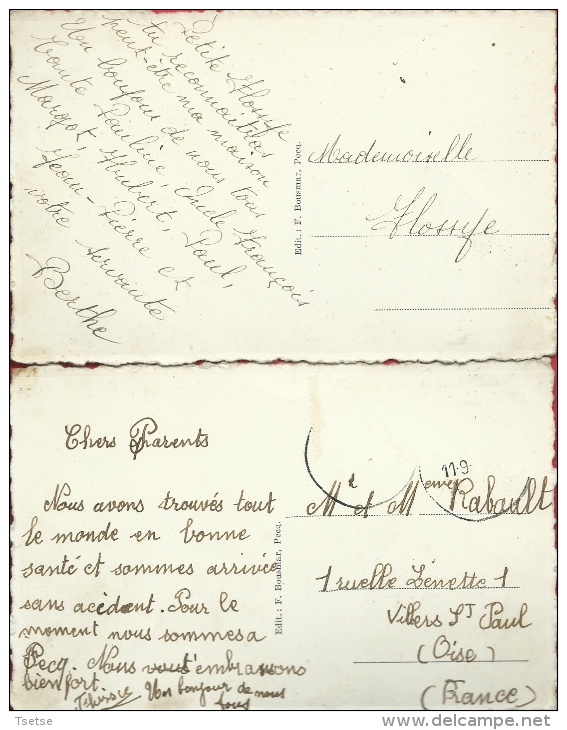 Petite Flossye
tu reconnaîtras
peut-être ma maison
Un bonjour de nous tous
tante Pauline, oncle François
Margot, Hubert, Paul,
Jean-Pierre et
votre servante
Berthe
Edit.: F. Bousmar, Pecq.
Mademoiselle
Flossye
Chers Parents
Nous avons trouvés tout
le monde en bonne
santé et sommes arrivée
sans accident. Pour le
moment nous sommes a
Pecq. Nous vous embrassons
bien fort.
Un bonjour de nous
tous
Edit.: F. Bousmar, Pecq.
11-9
Mr et Meme Rabault
1 ruelle Zénette 1
Villers St Paul
(Oise)
(France)
Tsetse
www.delcampe.net